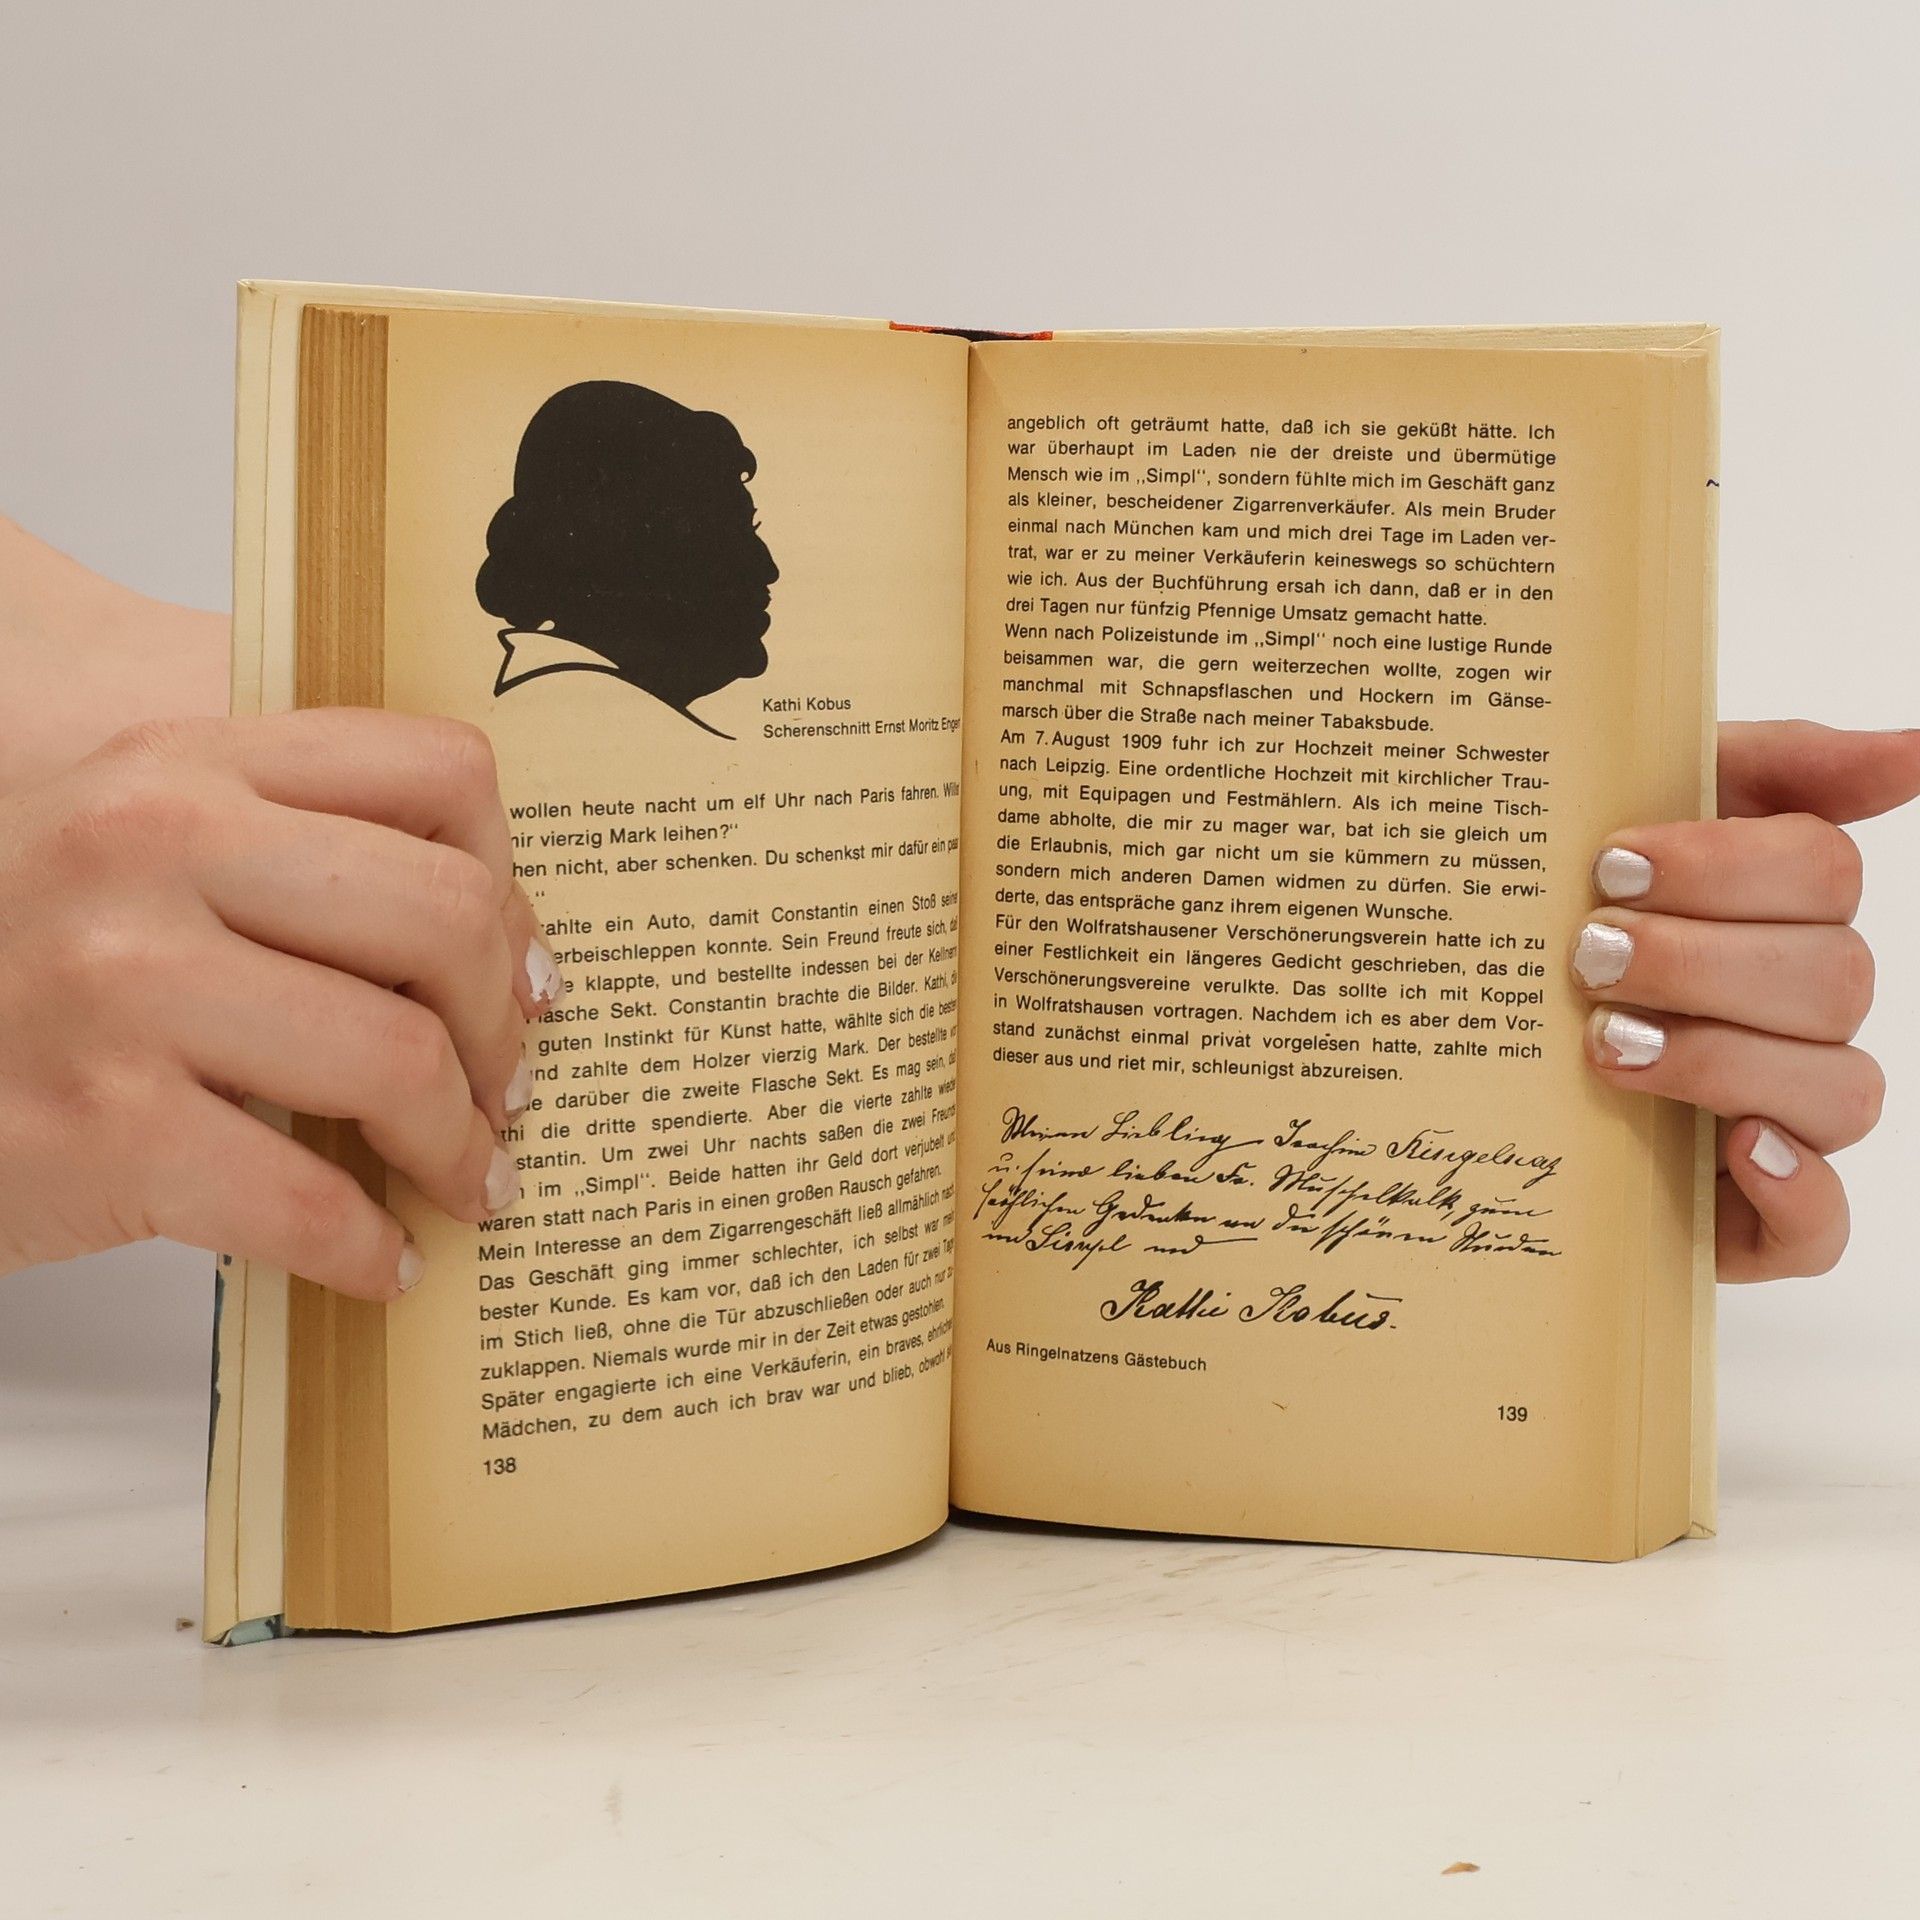 Kathi Kobus
Scherenschnitt Ernst Moritz Enger
wollen heute nacht um elf Uhr nach Paris fahren.
vierzig Mark leihen?“
nicht, aber schenken. Du schenkst mir dafür ein
ein Auto, damit Constantin einen Stoß
konnte. Sein Freund freute sich,
klappte, und bestellte indessen bei der
Sekt. Constantin brachte die Bilder. Kathi,
guten Instinkt für Kunst hatte, wählte sich die
zahlte dem Holzer vierzig Mark. Der bestellte
darüber die zweite Flasche Sekt. Es mag sein,
die dritte spendierte. Aber die vierte zahlte
Um zwei Uhr nachts saßen die zwei
im „Simpl“. Beide hatten ihr Geld dort verjubelt
waren statt nach Paris in einen großen Rausch gefahren.
Mein Interesse an dem Zigarrengeschäft ließ allmählich
Das Geschäft ging immer schlechter, ich selbst war
bester Kunde. Es kam vor, daß ich den Laden für zwei
im Stich ließ, ohne die Tür abzuschließen oder auch nur
zuklappen. Niemals wurde mir in der Zeit etwas gestohlen.
Später engagierte ich eine Verkäuferin, ein braves,
Mädchen, zu dem auch ich brav war und blieb, obwohl
138
angeblich oft geträumt hatte, daß ich sie geküßt hätte. Ich
war überhaupt im Laden nie der dreiste und übermütige
Mensch wie im „Simpl“, sondern fühlte mich im Geschäft ganz
als kleiner, bescheidener Zigarrenverkäufer. Als mein Bruder
einmal nach München kam und mich drei Tage im Laden ver-
trat, war er zu meiner Verkäuferin keineswegs so schüchtern
wie ich. Aus der Buchführung ersah ich dann, daß er in den
drei Tagen nur fünfzig Pfennige Umsatz gemacht hatte.
Wenn nach Polizeistunde im „Simpl“ noch eine lustige Runde
beisammen war, die gern weiterzechen wollte, zogen wir
manchmal mit Schnapsflaschen und Hockern im Gänse-
marsch über die Straße nach meiner Tabaksbude.
Am 7. August 1909 fuhr ich zur Hochzeit meiner Schwester
nach Leipzig. Eine ordentliche Hochzeit mit kirchlicher Trau-
ung, mit Equipagen und Festmählern. Als ich meine Tisch-
dame abholte, die mir zu mager war, bat ich sie gleich um
die Erlaubnis, mich gar nicht um sie kümmern zu müssen,
sondern mich anderen Damen widmen zu dürfen. Sie erwi-
derte, das entspräche ganz ihrem eigenen Wunsche.
Für den Wolfratshausener Verschönerungsverein hatte ich zu
einer Festlichkeit ein längeres Gedicht geschrieben, das die
Verschönerungsvereine verulkte. Das sollte ich mit Koppel
in Wolfratshausen vortragen. Nachdem ich es aber dem Vor-
stand zunächst einmal privat vorgelesen hatte, zahlte mich
dieser aus und riet mir, schleunigst abzureisen.
Meinem Liebling Joachim Ringelnatz
u. seine lieben Fr. Muschelkalk, zum
fröhlichen Gedenken an die schönen Stunden
im Simpl und
Kathie Kobus.
Aus Ringelnatzens Gästebuch
139